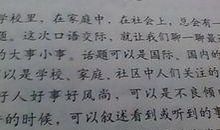 学校里，在家庭中，在社会上，总会有
题。这次口语交际，就让我们聊一聊最
的大事小事。话题可以是国际、国内的
可以是学校、家庭、社区中人们关注的
好人好事好风尚，可以是不良倾
的时候，可以叙述看到或听到的